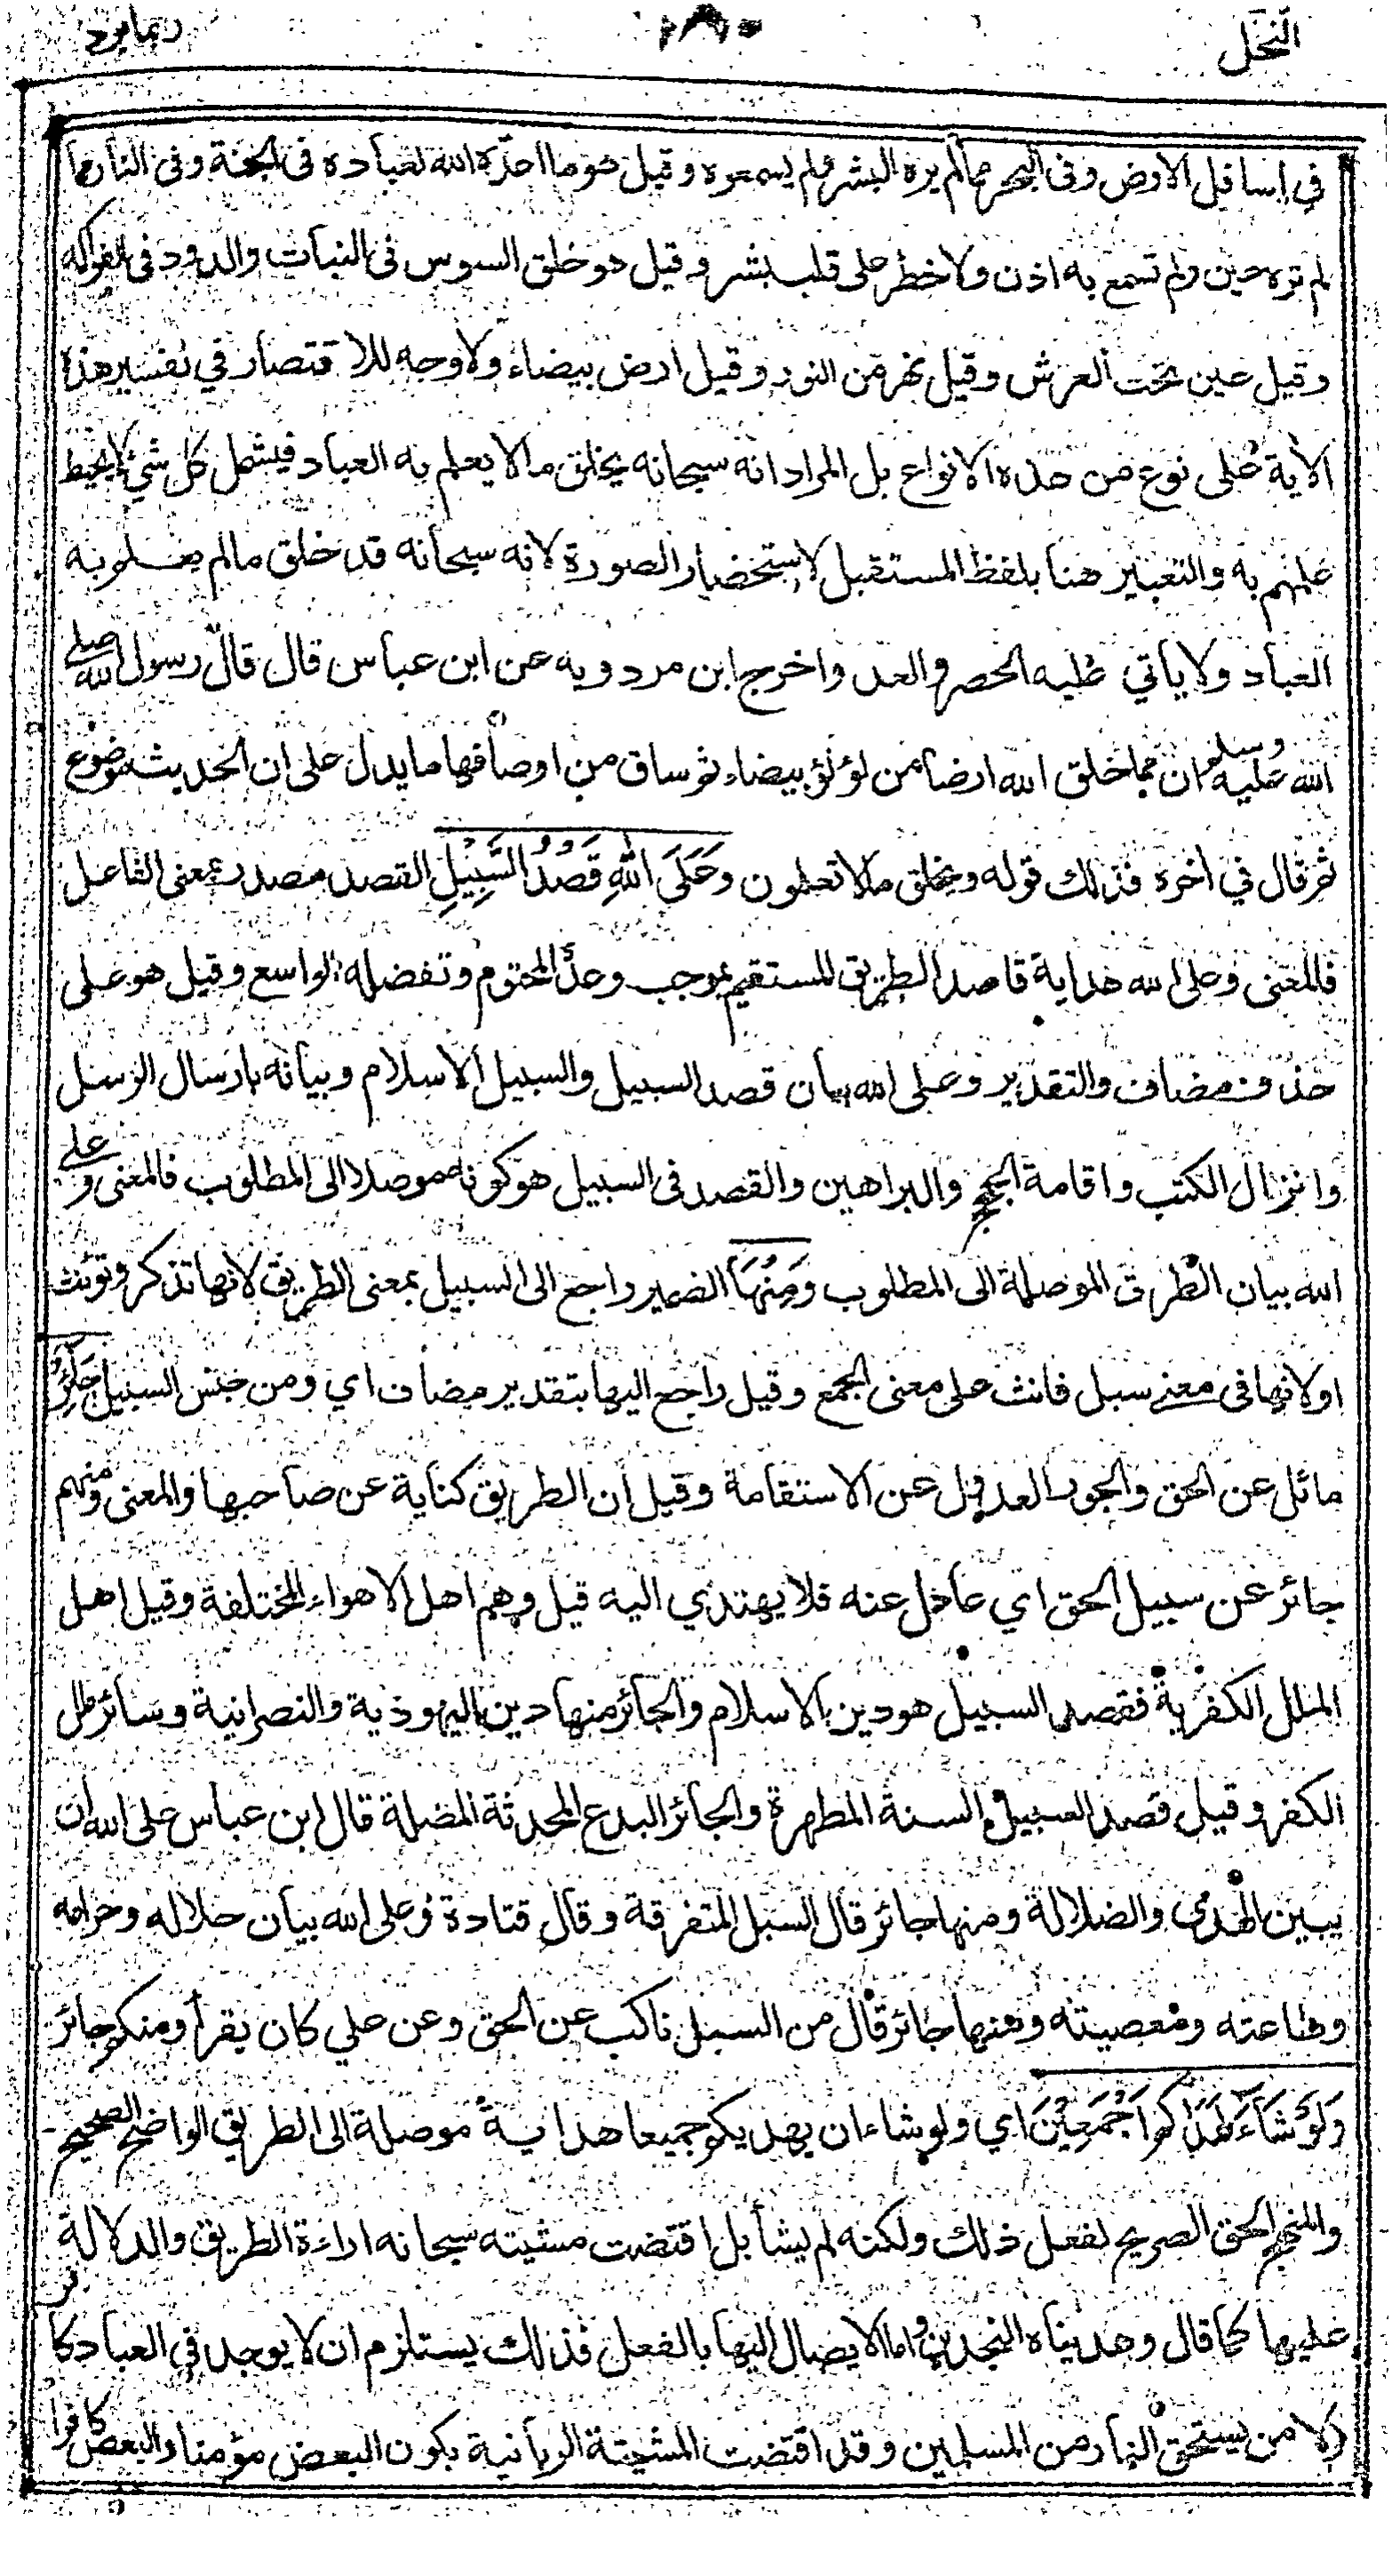 النحل
ربما يود
في اسافل الارض وفى البحر مما لم يره البشر ولم يسمعوه وقيل هو ما اعدّه الله لعباده فى الجنة وفى النار مما
لم تره عين ولم تسمع به اذن ولا خطر على قلب بشر وقيل هو خلق السوس فى النبات والدود فى الفواكه
وقيل عين تحت العرش وقيل نهر من النور وقيل ارض بيضاء ولا وجه للاقتصار في تفسير هذه
الاٰية على نوع من هذه الانواع بل المراد انه سبحانه يخلق ما لا يعلم به العباد فيشمل كل شيء لا يحيط
علمهم به والتعبير هنا بلفظ المستقبل لاستحضار الصورة لانه سبحانه قد خلق ما لم يعلم به
العباد ولا يأتي عليه الحصر والعد واخرج ابن مردويه عن ابن عباس قال قال رسول الله صلى
الله عليه وسلم ان مما خلق الله ارضا من لؤلؤ بيضاء ثم ساق من اوصافها ما يدل على ان الحديث موضوع
ثم قال في اٰخره فذلك قوله ويخلق ما لا تعلمون وَعَلَى اللّٰهِ قَصْدُ السَّبِيْلِ القصد مصدر بمعنى الفاعل
فالمعنى وعلى الله هداية قاصد الطريق المستقيم بموجب وعده المحتوم وتفضله الواسع وقيل هو على
حذف مضاف والتقدير وعلى الله بيان قصد السبيل والسبيل الاسلام وبيانه بارسال الرسل
وانزال الكتب واقامة الحجج والبراهين والقصد فى السبيل هو كونه موصلا الى المطلوب فالمعنى وعلى
الله بيان الطرق الموصلة الى المطلوب وَمِنْهَا الضمير راجع الى السبيل بمعنى الطريق لانها تذكر وتؤنث
او لانها فى معنى سبل فانث على معنى الجمع وقيل راجع اليها بتقدير مضاف اي ومن جنس السبيل جَائِرٌ
مائل عن الحق والجور العدول عن الاستقامة وقيل ان الطريق كناية عن صاحبها والمعنى ومنهم
جائر عن سبيل الحق اي عادل عنه فلا يهتدي اليه قيل وهم اهل الاهواء المختلفة وقيل اهل
الملل الكفرية فقصد السبيل هو دين الاسلام والجائر منها دين اليهودية والنصرانية وسائر ملل
الكفر وقيل قصد السبيل السنة المطهرة والجائر البدع المحدثة المضلة قال ابن عباس على الله ان
يبين الهدى والضلالة ومنها جائر قال السبل المتفرقة وقال قتادة وعلى الله بيان حلاله وحرامه
وطاعته ومعصيته ومنها جائر قال من السبل ناكب عن الحق وعن علي كان يقرأ ومنكم جائر
وَلَوْ شَآءَ لَهَدٰكُمْ اَجْمَعِيْنَ اي ولو شاء ان يهديكم جميعا هداية موصلة الى الطريق الواضح الصحيح
والمنهج الحق الصريح لفعل ذلك ولكنه لم يشأ بل اقتضت مشيته سبحانه اراءة الطريق والدلالة
عليها كما قال وهديناه النجدين واما الايصال اليها بالفعل فذلك يستلزم ان لا يوجد في العباد كا
ولا من يستحق النار من المسلمين وقد اقتضت المشيئة الربانية بكون البعض مؤمنا والبعض كافرا